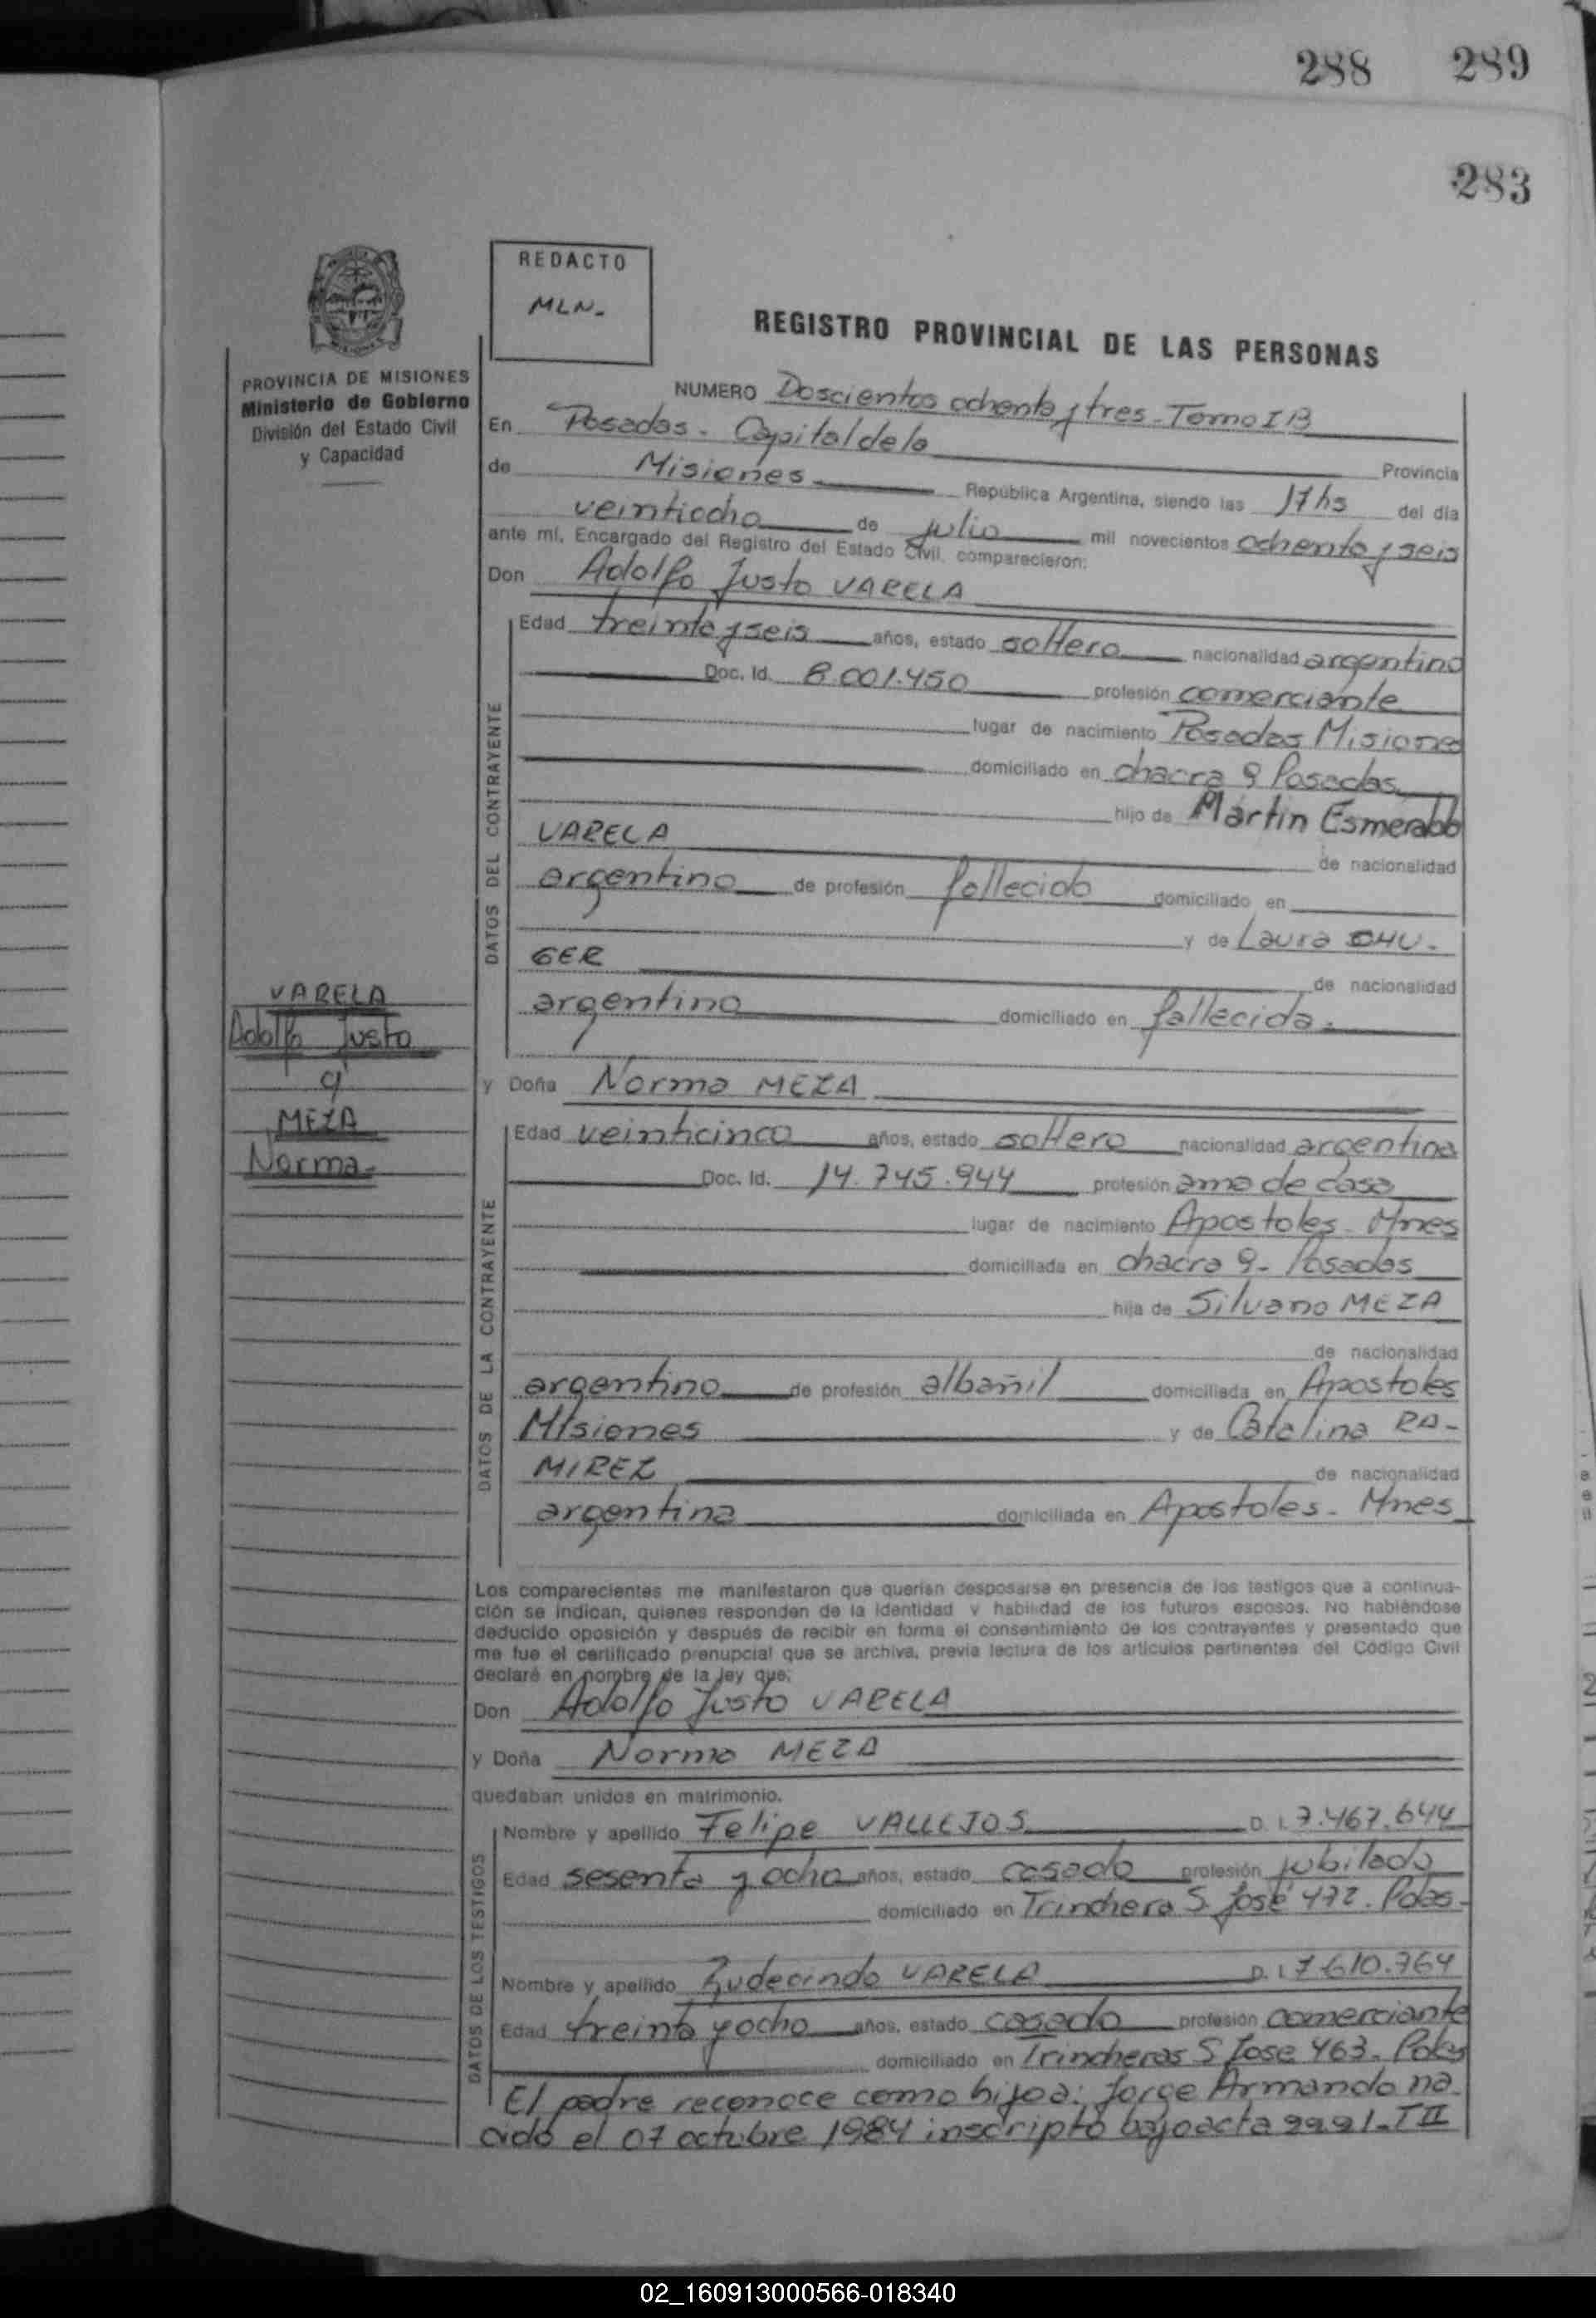 288 289
283
REDACTO
MLN-
REGISTRO PROVINCIAL DE LAS PERSONAS
PROVINCIA DE MISIONES
Ministerio de Gobierno
División del Estado Civil
y Capacidad
NUMERO Doscientos ochenta y tres - Tomo I B
En Posadas - Capital de la Provincia
de Misiones República Argentina, siendo las 17 hs del día
veintiocho de julio mil novecientos ochenta y seis
ante mí, Encargado del Registro del Estado Civil, comparecieron:
Don Adolfo Justo VARELA
DATOS DEL CONTRAYENTE
Edad treinta y seis años, estado soltero nacionalidad argentino
Doc. Id. 8.001.450 profesión comerciante
lugar de nacimiento Posadas Misiones
domiciliado en chacra 9 Posadas
hijo de Martin Esmeraldo
VARELA de nacionalidad
argentino de profesión fallecido domiciliado en
y de Laura CHU-
GER de nacionalidad
argentina domiciliado en fallecida.
VARELA
Adolfo Justo
MEZA
Norma-
y Doña Norma MEZA
DATOS DE LA CONTRAYENTE
Edad veinticinco años, estado soltera nacionalidad argentina
Doc. Id. 14.745.944 profesión ama de casa
lugar de nacimiento Apostoles - Mnes
domiciliada en chacra 9- Posadas
hija de Silvano MEZA
de nacionalidad
argentino de profesión albañil domiciliada en Apostoles
Misiones y de Catalina RA-
MIREZ de nacionalidad
argentina domiciliada en Apostoles - Mnes
Los comparecientes me manifestaron que querían desposarse en presencia de los testigos que a continua-
ción se indican, quienes responden de la identidad y habilidad de los futuros esposos. No habiéndose
deducido oposición y después de recibir en forma el consentimiento de los contrayentes y presentado que
me fue el certificado prenupcial que se archiva, previa lectura de los artículos pertinentes del Código Civil
declaré en nombre de la ley que:
Don Adolfo Justo VARELA
y Doña Norma MEZA
quedaban unidos en matrimonio.
DATOS DE LOS TESTIGOS
Nombre y apellido Felipe VALLEJOS D. I. 7.467.644
Edad sesenta y ocho años, estado casado profesión jubilado
domiciliado en Trinchera S. José 472. Pdas-
Nombre y apellido Rudecindo VARELA D. I. 7.610.764
Edad treinta y ocho años, estado casado profesión comerciante
domiciliado en Trincheras S Jose 463. Pdas
El padre reconoce como hijo a: Jorge Armando na-
cido el 07 octubre 1984 inscripto bajo acta T II
02_160913000566-018340